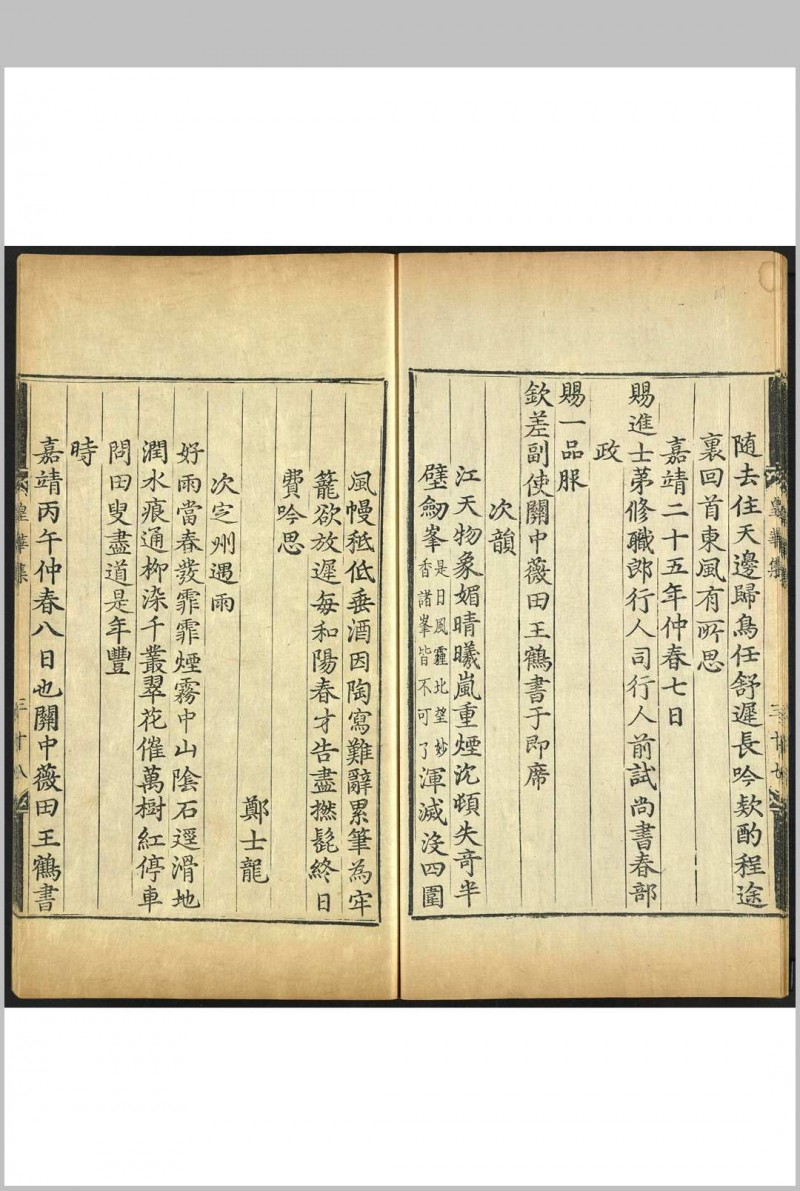 隨去住天邊歸鳥任舒遲長吟欵酌程途
裏回首東風有所思
嘉靖二十五年仲春七日
賜進士茅修職郎行人司行人前試尚書春部
政
賜一品服
欽差副使關中薇田王鶴書于即席
次韻
江天物象媚晴曦嵐重煙沈頓失奇半
壁劒峯是日風霾北望妙香諸峯皆不可了渾減沒四圍
皇華集
三十七
風幔秪低垂酒因陶寫難辭累筆為牢
籠欲放遲每和陽春才告盡撚髭終日
費吟思
次定州遇雨
鄭士龍
好雨當春發霏霏煙霧中山陰石逕滑地
潤水痕通柳染千叢翠花催萬樹紅停車
問田叟盡道是年豐
時
嘉靖丙午仲春八日也關中薇田王鶴書
皇華集
三十八